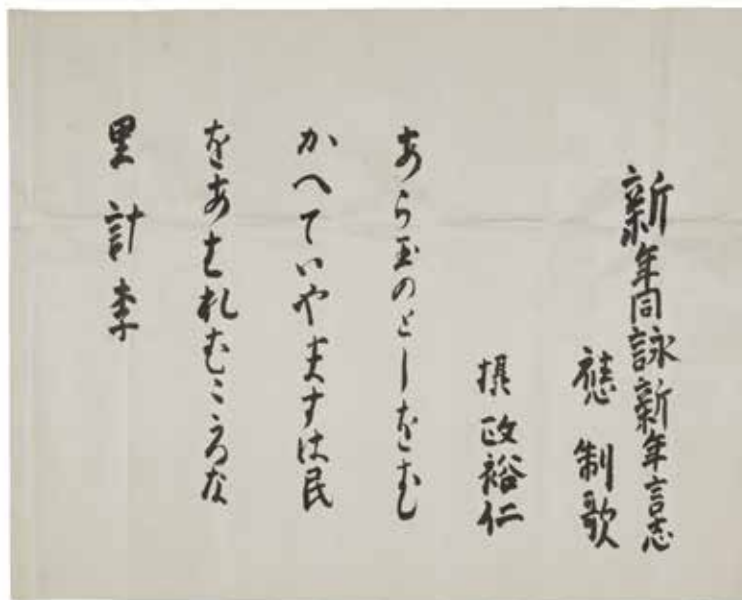 新年同詠新年言志
應制歌
摂政裕仁
あら玉のとしをむ
かへていやますは民
をあはれむこゝろな
里計李